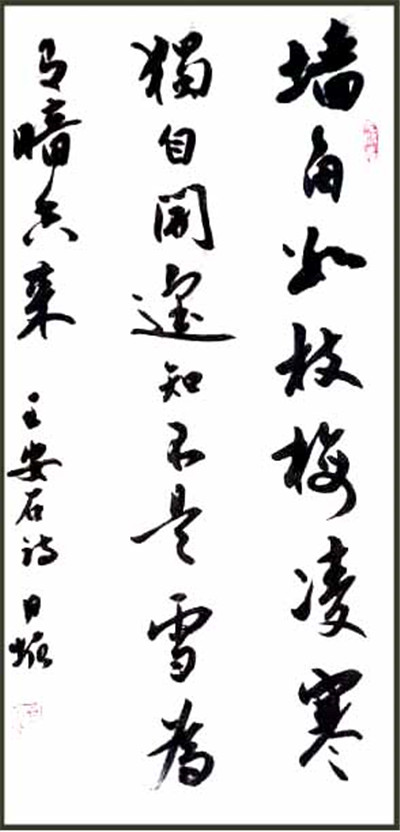 墙角数枝梅凌寒
獨自開遥知不是雪為
有暗香来 王安石詩 日